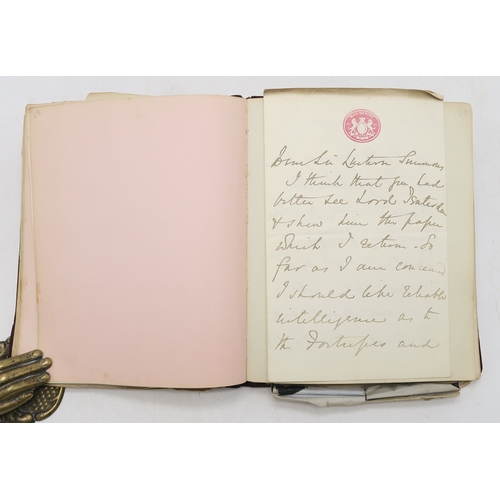 Dear Sir Lintorn Simmons
I think that you had
better see Lord
& shew him the paper
which I return. So
far as I am concerned
I should like reliable
intelligence as to
the Fortresses and